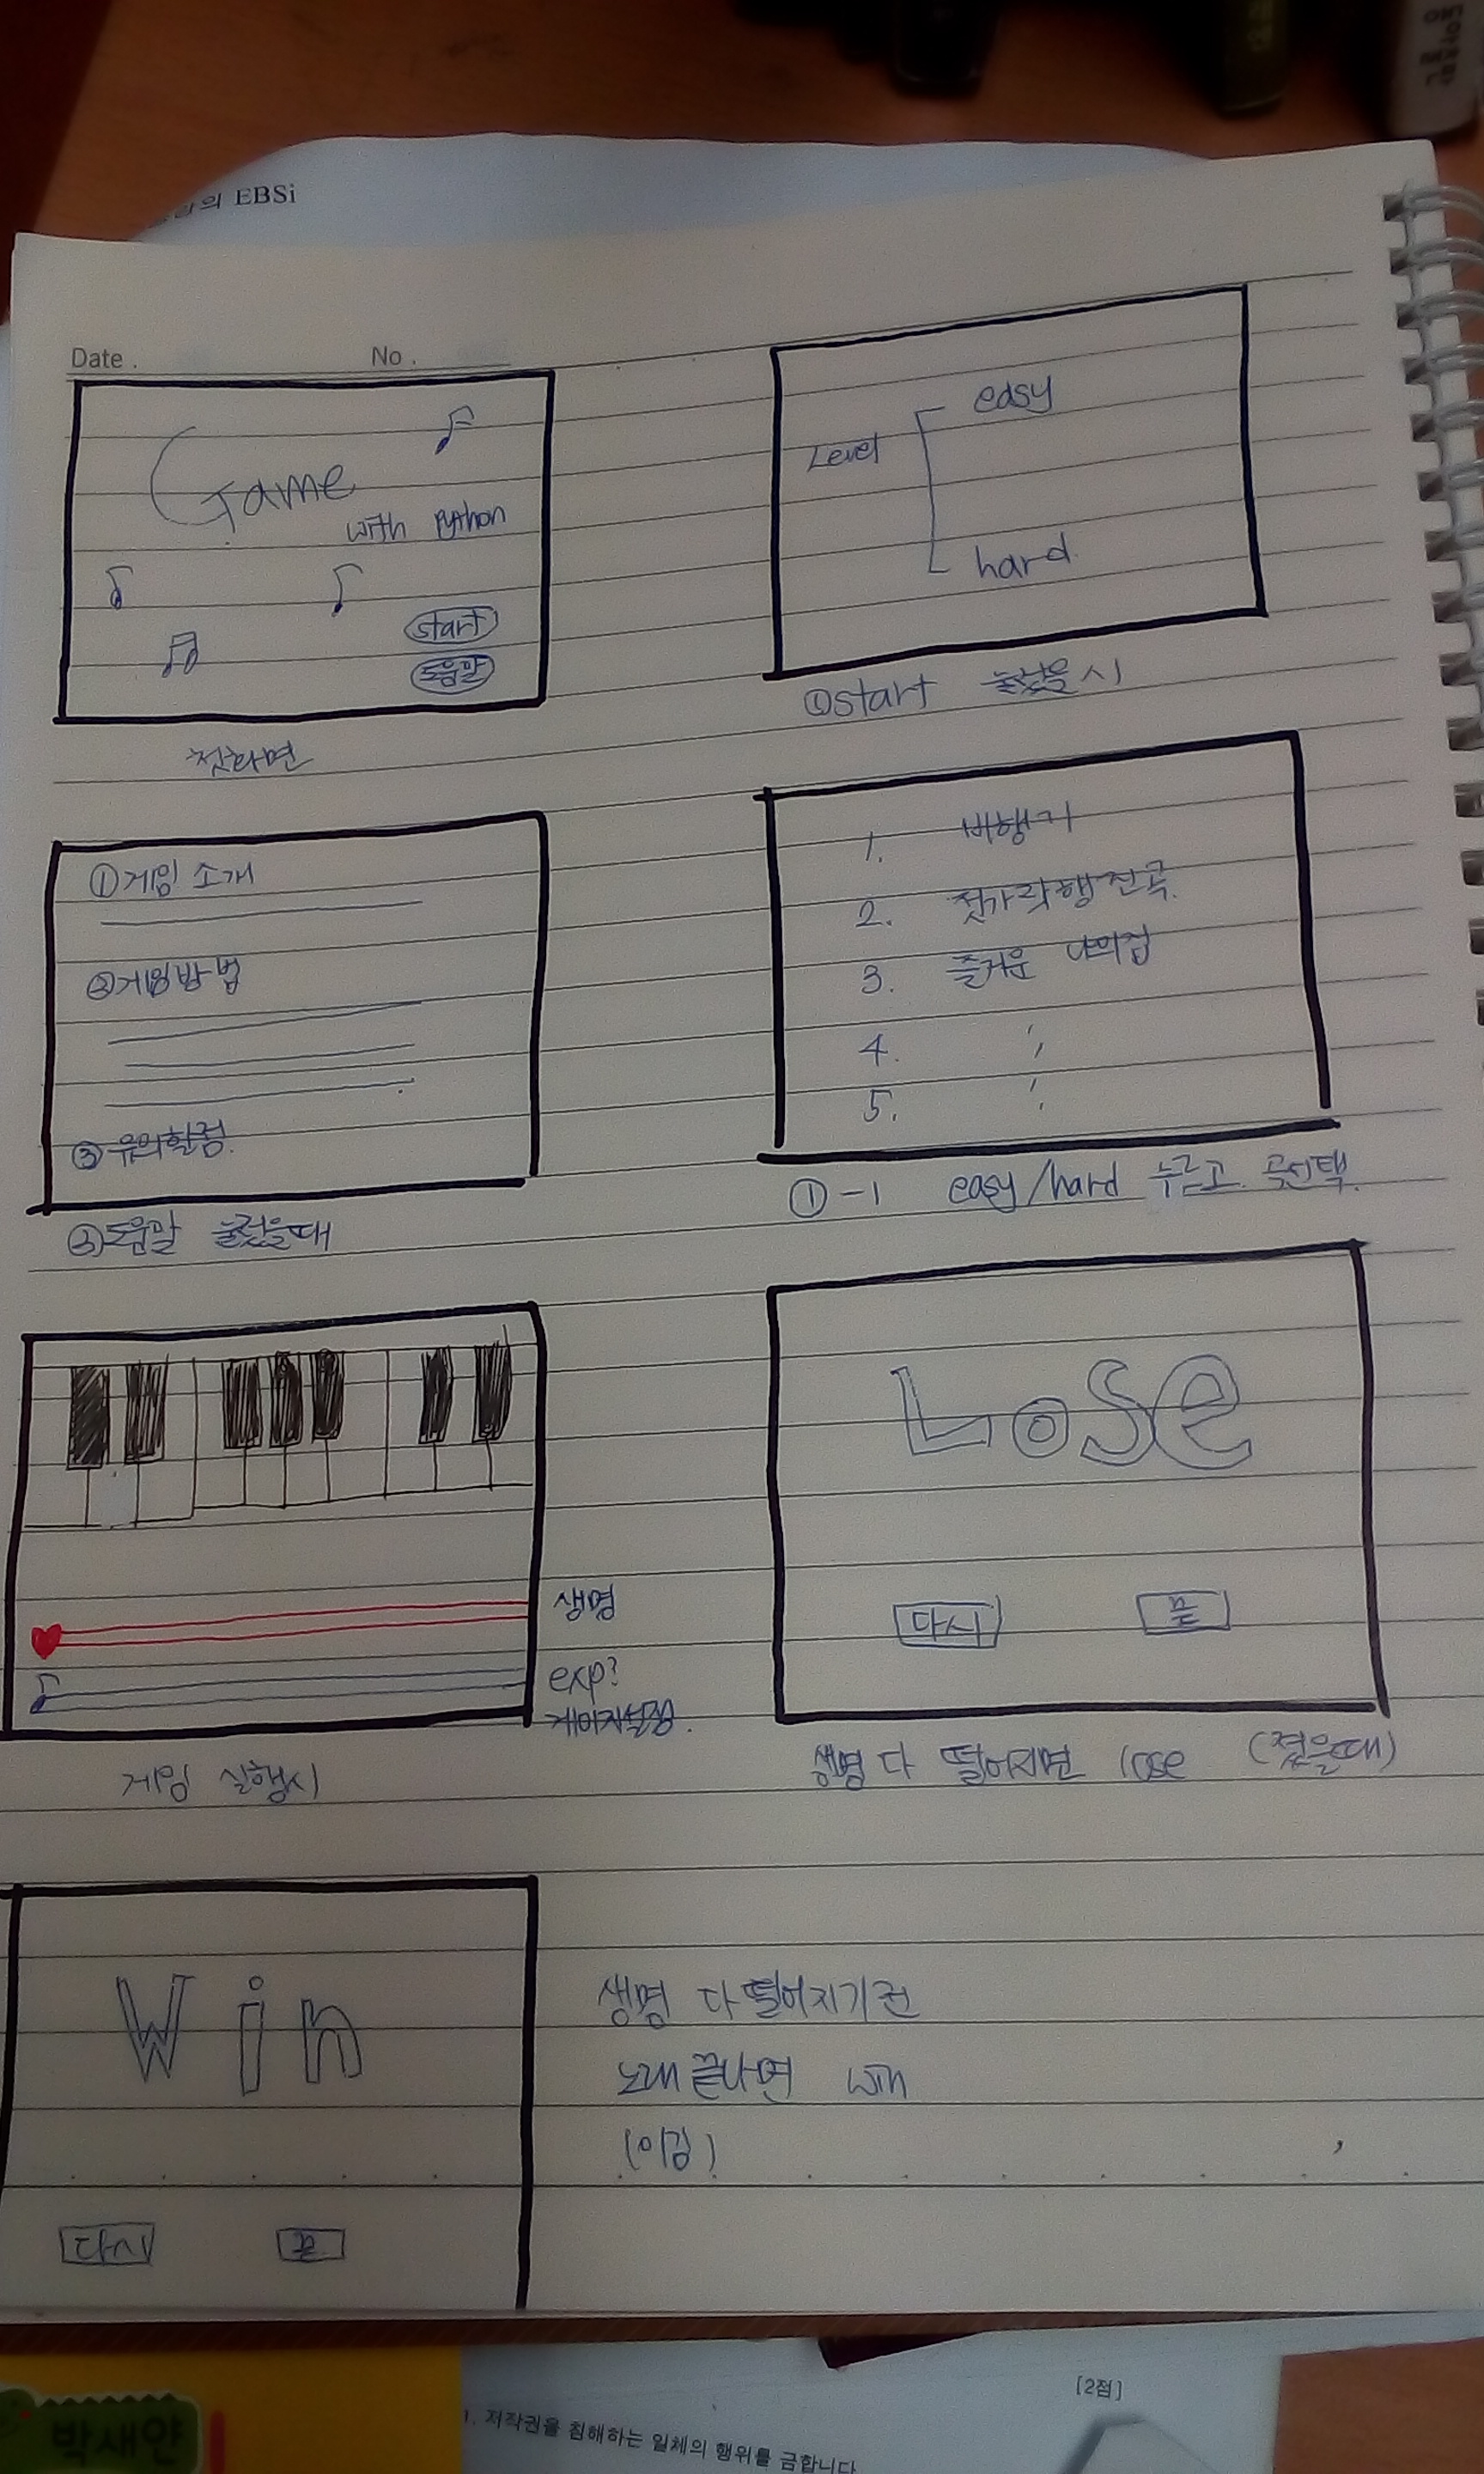 의 EBSi
Date .
No .
Game
with Python
start
도움말
첫화면
Level
easy
hard
①start 눌렀을 시
①게임 소개
②게임방법
③유의할점.
②도움말 눌렀을때
1. 비행기
2. 젓가락행진곡.
3. 즐거운 나의집
4.
5.
①-1 easy/hard 누르고 곡선택.
생명
exp?
게이지설정.
게임 실행시
Lose
다시
끝
생명 다 떨어지면 lose (졌을때)
Win
다시
끝
생명 다 떨어지기전
노래끝나면 win
(이김)
박새얀
1. 저작권을 침해하는 일체의 행위를 금합니다
[2점]